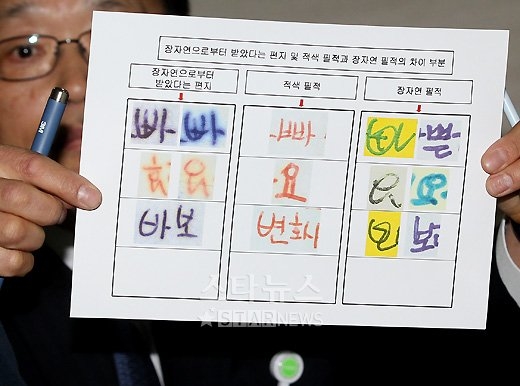 장자연으로부터 받았다는 편지 및 적색 필적과 장자연 필적의 차이 부분
장자연으로부터
받았다는 편지
적색 필적
장자연 필적
빠 빠
빠
쁜
요
요
요
바보
변호사
보
스타뉴스
STARNEWS